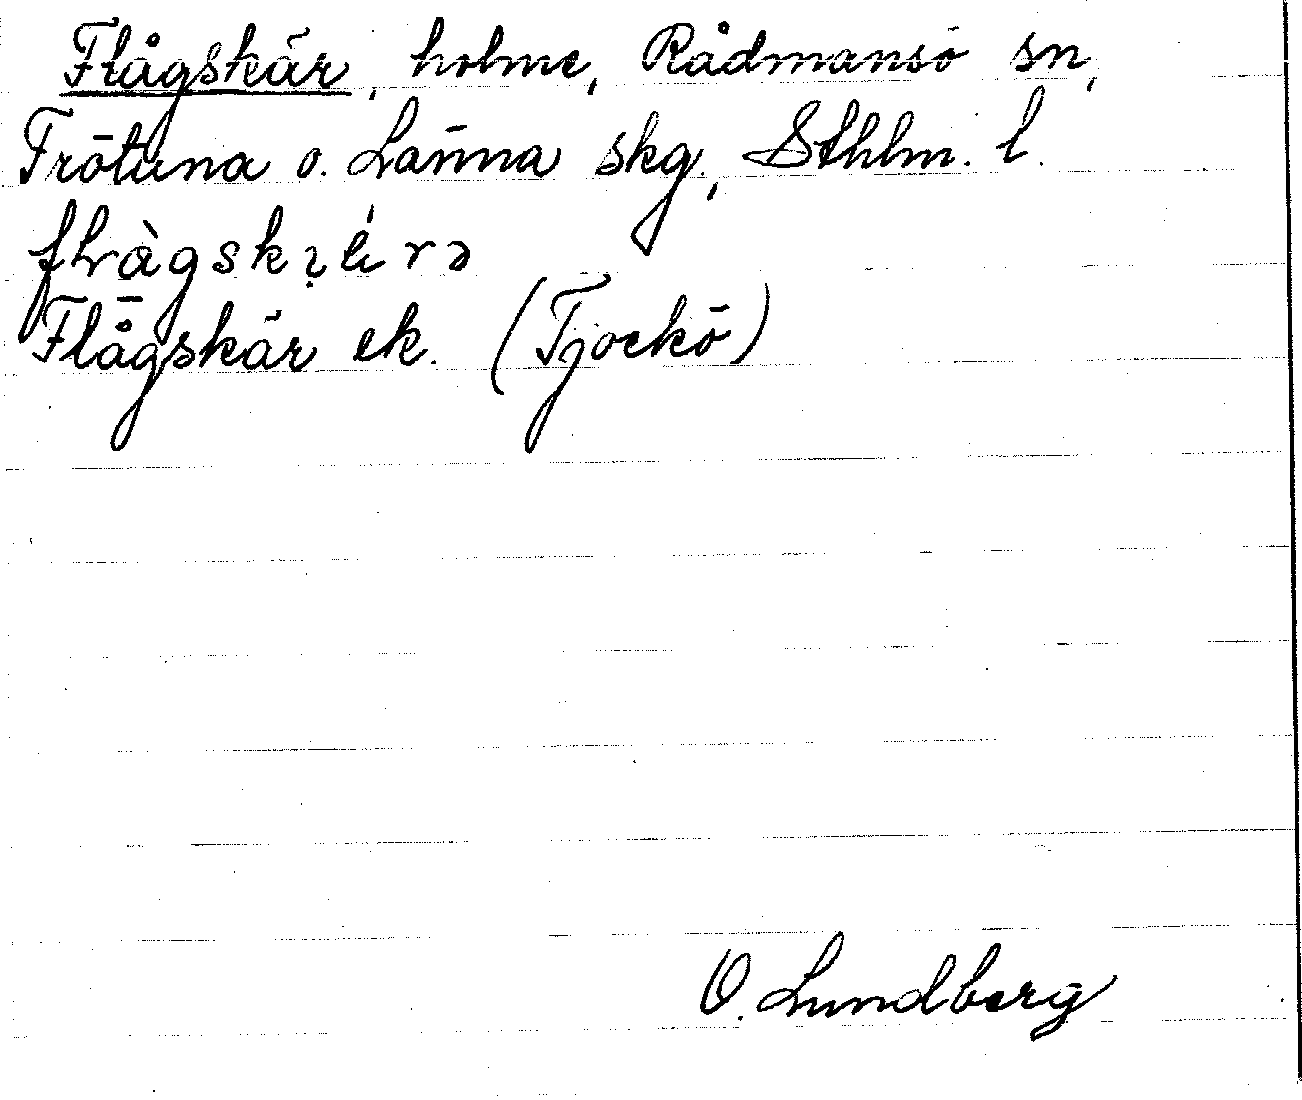 Flågskär, holme, Rådmansö sn,
Frötuna o. Länna skg., Sthlm. l.
Flågskär ek. (Tjockö)
O. Lundberg